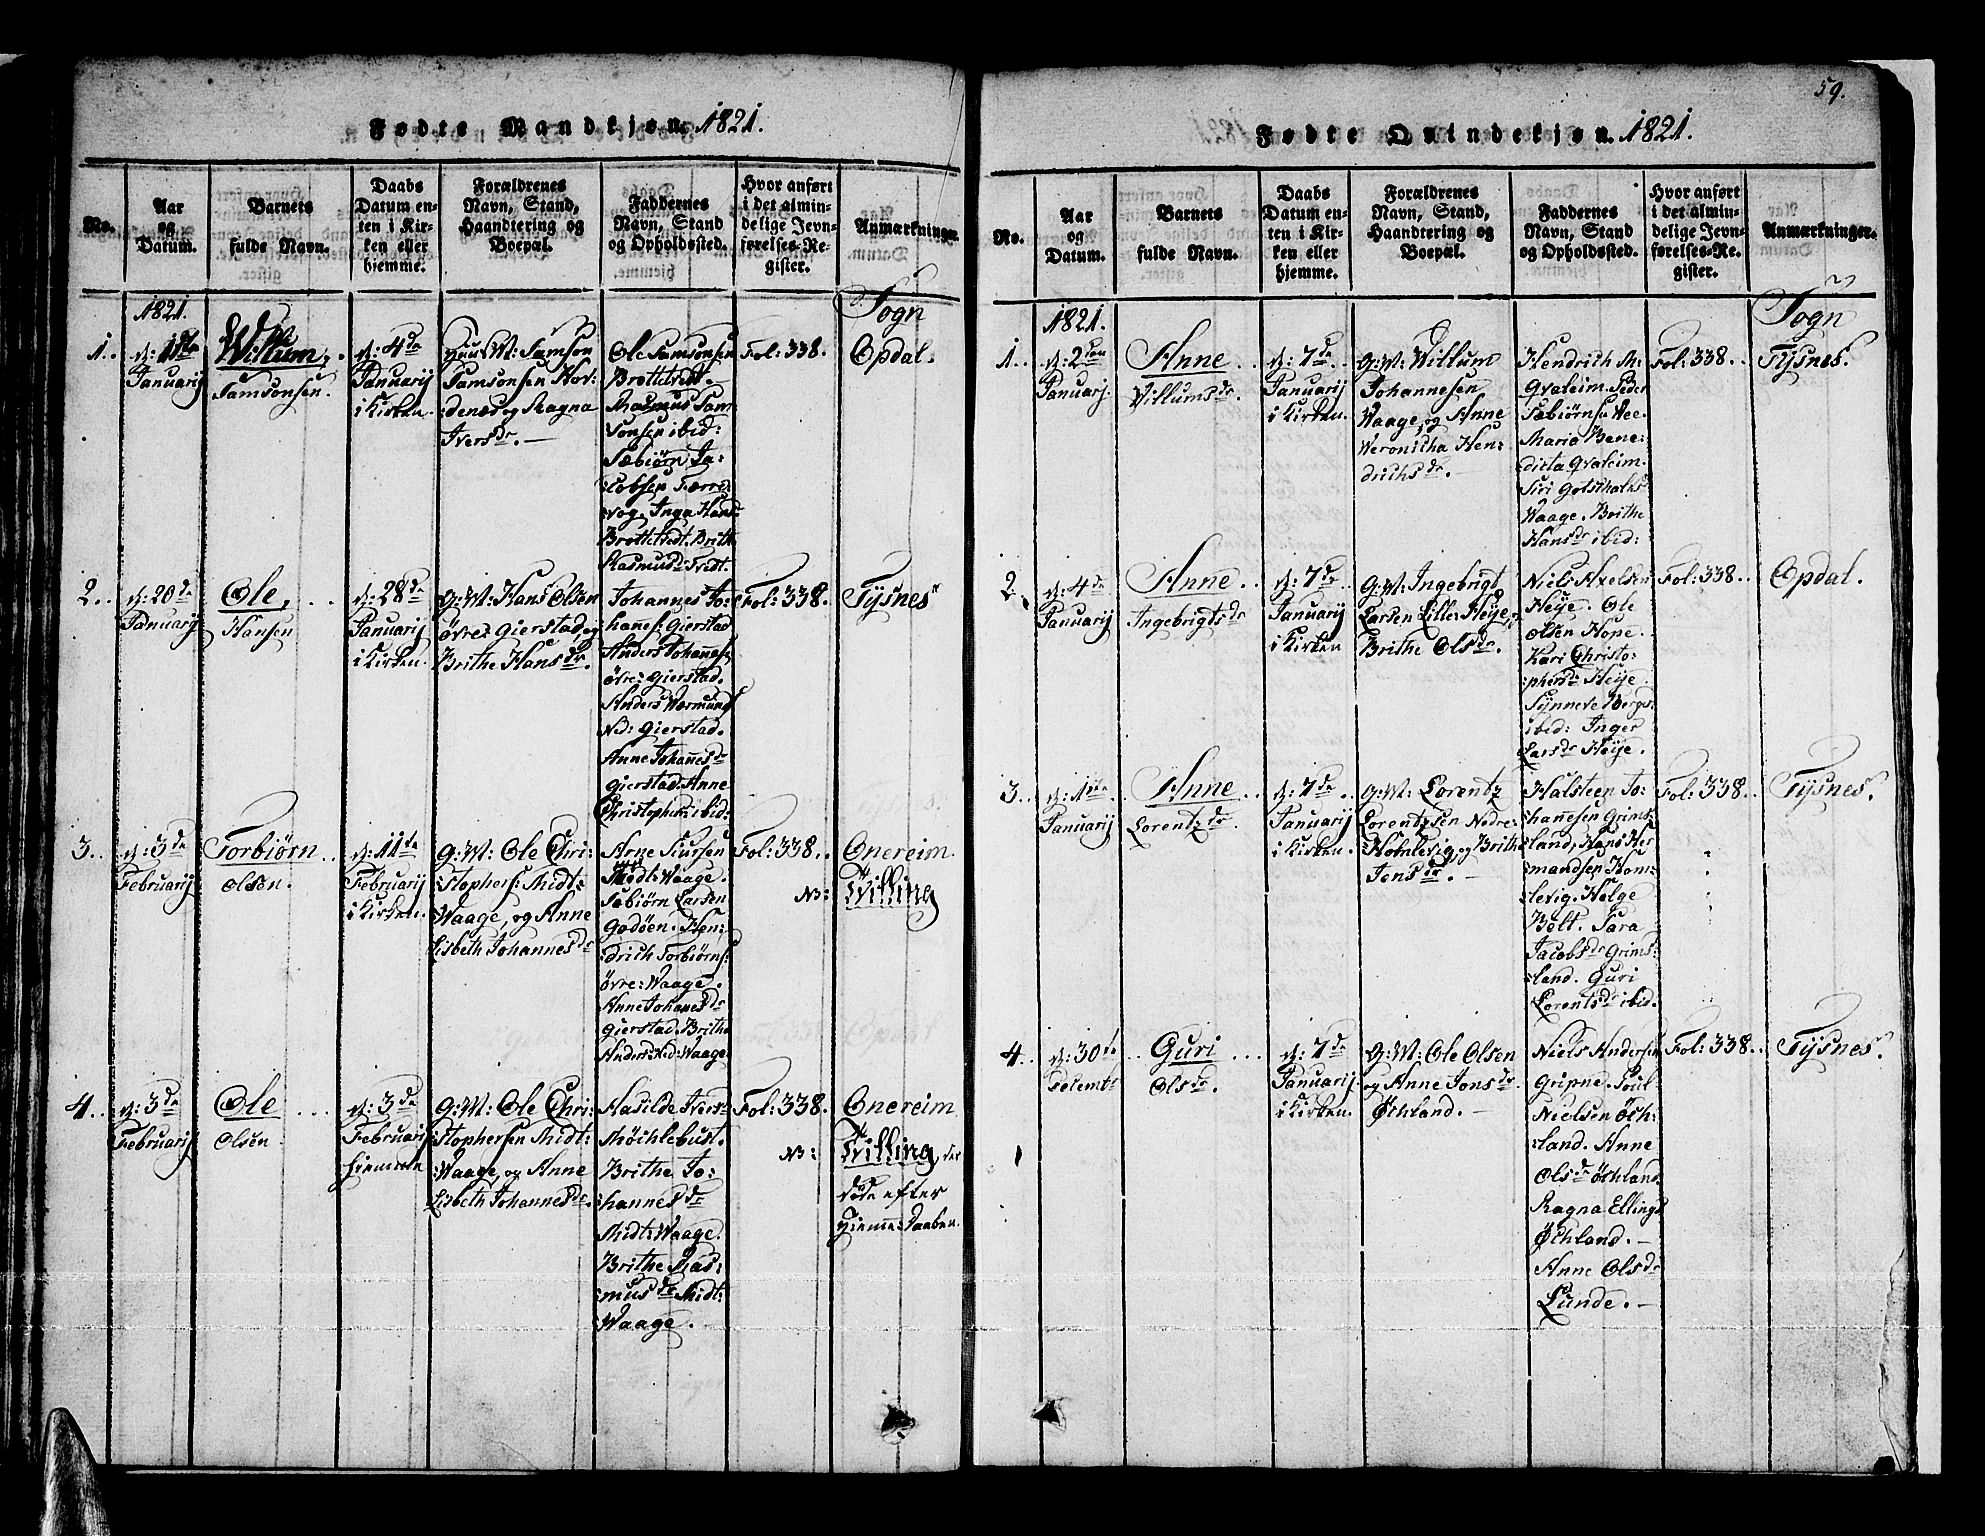 Fødte Mandkjøn. 1821.
No.
Aar
og
Datum.
Barnets
fulde Navn.
Daabs
Datum en-
ten i Kir-
ken eller
hjemme.
Forældrenes
Navn, Stand,
Haandtering og
Boepæl.
Faddernes
Navn, Stand
og Opholdssted.
Hvor anført
i det almin-
delige Jevn-
førelses-Re-
gister.
Anmærkninger.
Sogn
1821.
1..
d: 1ste
Januarij
Willum,
Samsonsen.
d: 4de
Januarij
i Kirken.
Samson
Samsonsen Hov:
denæs og Ragna
Iversdr. —
Ole Samsonsen
Brottetvedt.
Rasmus Sam
sonsen ibid:
Sæbiørn Ja:
:cobsen Færre
vog. Inga Hans
Brottetvedt. Brith
Rasmusd: Tvedt.
Fol: 338.
Opdal.
2..
d: 20de
Januarij
Ole,
Hansen
d: 28de
Januarij
i Kirken.
G: M: Hans Olsen
øvre Gierstad, og
Brithe Hansdr.
Johannes Jo:
:hanes: Gierstad
Anders Johannes:
øvre: Gierstad.
Anders Wærmunds
Ned: Gierstad.
Anne Johanesdr
Gierstad. Anne
Christophers: ibid:
Fol: 338.
Tysnes
3..
d: 3de
Februarij
Torbiørn
Olsen.
d: 11te
Februarij
i Kirken.
G: M: Ole Chri:
:stophers: Midt:
Waage, og Anne
Lisbeth Johannesdr
Arne Siursen
Midt: Waage.
Sæbiørn Larsen
Godøen. Hen:
:drich Torbiørns:
øvre: Waage.
Anne Johanesdr
Gierstad. Brithe
Anders: Ned: Waage.
Fol: 338..
NB:
Onereim.
Tvilling
4..
d: 3de
Februarij
Ole
Olsen.
d: 3de
Februarij
hiemme
G: M: Ole Chri:
:stophersen Midt:
:Waage, og Anne
Lisbeth Johannesdr.
Hasilde Ivers:
Møichlebust.
Brithe Jo:
:hannesdr
Midt: Waage.
Brithe Ras:
:musdr Midt:
:Waage.
Fol: 338.
NB:
Onereim
Tvilling, der
døde efter
Hiemme: Daaben.
59.
Fødte Qvindekjøn. 1821.
No.
Aar
og
Datum.
Barnets
fulde Navn.
Daabs
Datum en-
ten i Kir-
ken eller
hjemme.
Forældrenes
Navn, Stand,
Haandtering og
Boepæl.
Faddernes
Navn, Stand
og Opholdssted.
Hvor anført
i det almin-
delige Jevn-
førelses-Re-
gister.
Anmærkninger.
Sogn
1821.
1..
d: 2den
Januarj.
Anne
Villumsdr.
d: 7de
Januarij
i Kirken.
G: M: Willum
Johannesen
Waage, og Anne
Weronitha Hen:
:drichsdr. —
Hendrich M.
Qvaleim. Peder
Sæbiørnsen Wee
Maria Bene:
:dicta Qvaleim.
Siri Gotschalks
Waage. Brithe
Hansdr ibid:
Fol: 338.
Tysnes.
2.
d: 4de
Januarij
Anne
Ingebrigtsdr
d: 7de
Januarij
i Kirken
G: M: Ingebrigt
Larsen Lille Heye,
Brithe Olsdr.
Niels Axelsen
Heye. Ole
Olsen Hope.
Kari Christo:
:phersd: Heye.
Synneve Børges:
ibid: Inger
Larsdr Heye.
Fol: 338..
Opdal.
3..
d: 1ste
Januarij
Anne
Lorentzdr.
d: 7de
Januarij
i Kirken.
G: M: Lorentz
Lorentzsen Nedre:
:Holmlevig, og Brithe
Jonsdr. —
Halsteen Jo:
:hanesen Grims:
:land, Hans Her
mandsen Hom:
:levig. Helge
Belt. Sara
Jacobsdr Grims:
:land. Guri
Lorentsdr ibid:
Fol: 338..
Tysnes.
4..
d: 30te
Decembr
Guri
Olsdr.
d: 7de
Januarij
i Kirken.
G: M: Ole Olsen
og Anne Jonsdr
Øchland. —
Niels Andersen
Gripne. Poul
Nielsen Øch:
:land. Anne
Olsdr Øchland.
Ragna Ellings
Øchland. —
Anne Olsdr
Lunde. —
Fol: 338..
Tysnes.